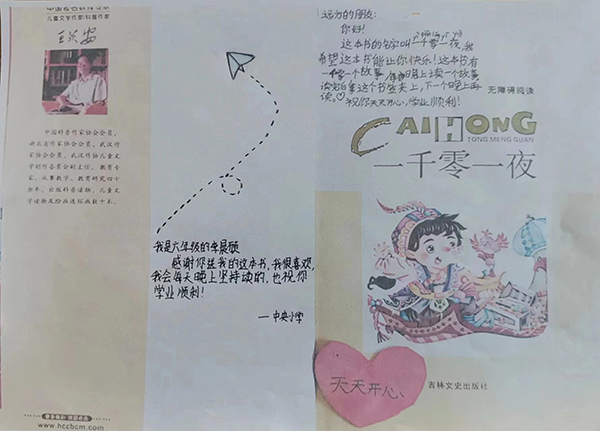 儿童文学作家/科普作家
中国科普作家协会会员,
湖北省作家协会会员, 武汉作
家协会会员, 武汉作协儿童文
学创作委员会副主任, 教育专
家。从事教学、教育研究四十
余年, 出版科普读物、儿童文
学读物及绘画连环画数十本。
www.hccbcm.com
我是六年级的李晨硕
感谢你送我的这本书, 我很喜欢,
我会每天晚上坚持读的, 也祝你
学业顺利!
—中央小学
远方的朋友:
你好!
这本书的名字叫一千零一夜, 我
希望这本书能让你快乐! 这本书有
一千零一个故事
晚上读一个故事
下一个晚上再
读。祝你天天开心, 学业顺利!
无障碍阅读
CAIHONG
TONG MENG GUAN
一千零一夜
天天开心
吉林文史出版社